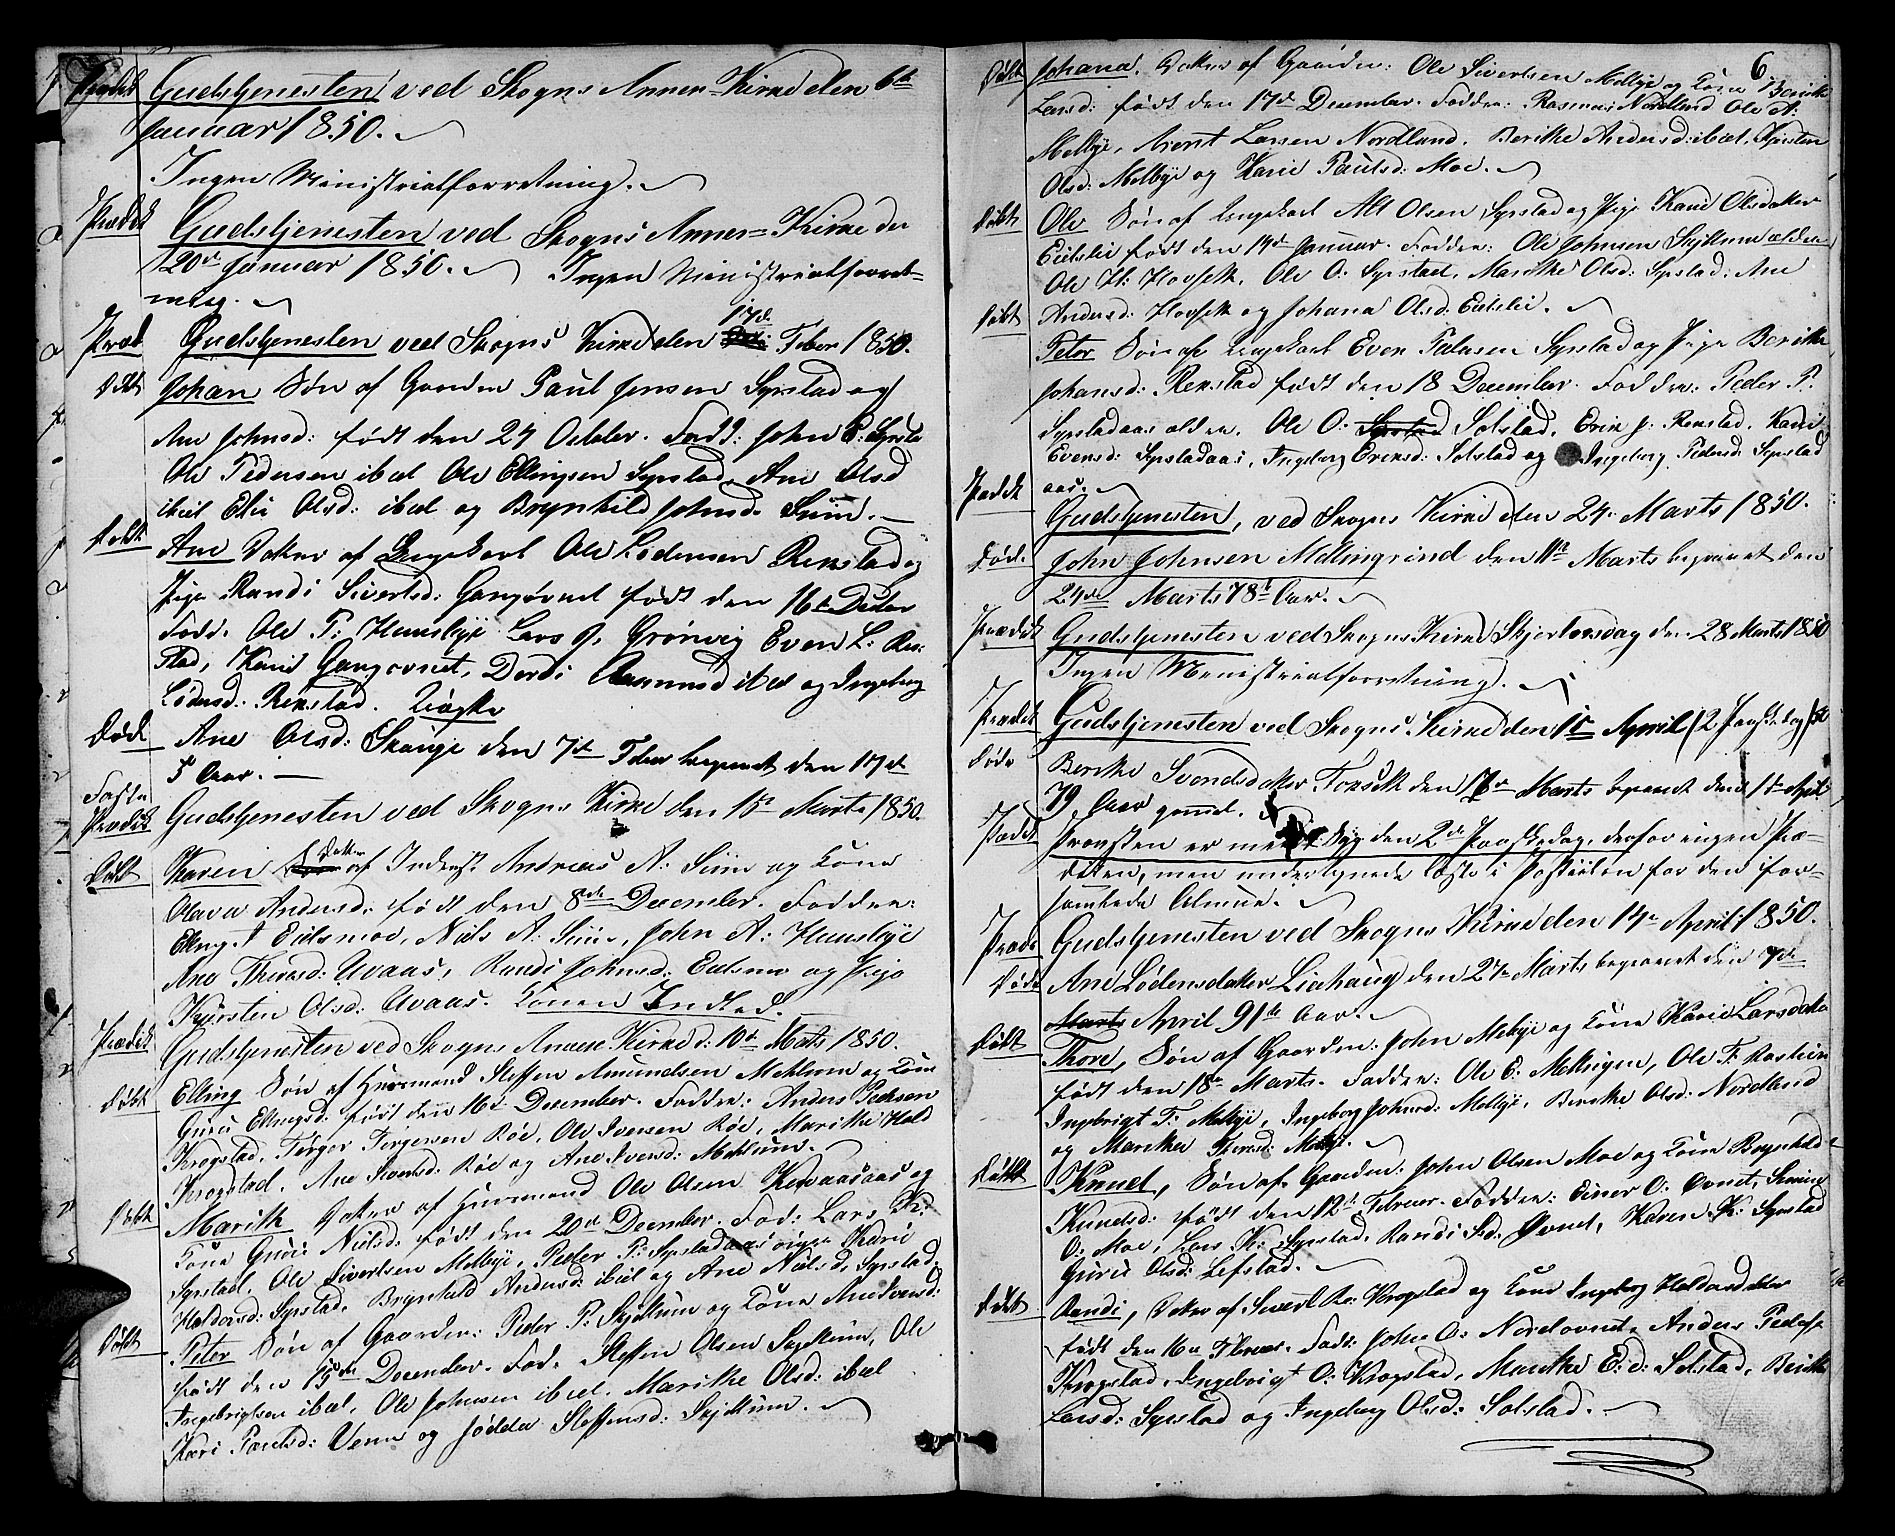 Prædik Gudstjenesten ved Skogns Annex-Kirke den 6te
Januar 1850.
Ingen Ministrialforretning.
Prædik Gudstjenesten ved Skogns Annex-Kirke den
20de Januar 1850. Ingen Ministrialforret-
ning.
Præd Gudstjenesten ved Skogns Kirke den 17de Feber 1850.
Døbt Johan Søn af Gaarden Paul Jensen Syrstad og
Ane Johnsd: født den 24 October. Fadd: John P: Syrsta
Ole Pedersen ibd Ole Ellingsen Syrstad, Ane Olsd
ibid Eli Olsd: ibid og Brynhild Johnsd. Siim.
Døbt Ane Datter af Ungekarl Ole Lodensen Renstad og
Pige Randi Sivertsd: Gangsvad født den 16de Decber
Fadd. Ole P: Hunslye Lars J. Grönveg Even L: Ren-
stad, Kari Gangsvad, Dordi Aamunsd ibid og Ingeborg
Lodensd: Renstad. Uægte
Død Ane Olsd: Skauge den 7de Feber begravet den 17de
5 Aar.
Faste Prædik Gudstjenesten ved Skogns Kirke den 15de Marts 1850.
Døbt Karen Datter af Inderst Andreas A: Siim og Kone
Olava Andersd: født den 8de December. Faddere:
Eling I Eidsmoe, Niels A: Siim, John A: Hunslye
Ane Thoresd: Uvaas, Randi Johnsd: Eidsmo og Pige
Kjersten Olsd: Uvaas. Konen Indled.
Prædik Gudstjenesten ved Skogns Annex Kirke d: 10de Mats 1850.
Døbt Elling Søn af Huusmand Steffen Amundsen Mehlum og Kone
Guru Elingsd: født den 16de December. Faddere: Anders Pedersen
Krogstad, Tørger Tørgersen Röe, Ole Iversen Röe, Marithe Hald
Krogstad, Ane Iversd: Röe og Ane Iversd: Mehlum.
Døbt Marith Datter af Huusmand Ole Olsen Kavaasaas og
Kone Guru Nielsd: født den 20de December. Fad: Lars K:
Syrstad, Ole Sivertsen Melbye, Peder P: Syrstadaas Kari
Haldorsd: Syrstad, Brynhild Andersd: ibid og Ane Nielsd, Syrstad.
Døbt Peter Søn af Gaarden: Peder P: Skjitlum og Kone Ane Iversd:
født den 15de December. Fad. Steffen Olsen Skjitlum, Ole
Ingebrigtsen ibid, Ole Johnsen ibid, Marithe Olsd: ibid
Kari Paulsd: Venn og Jödda Steffensd: Skjitlum.
6
Døbt Johana. Datter af Gaarden: Ole Sivertsen Melbye og Kone Berithe
Larsd: født den 17de December. Faddere: Rasmus Nordland Ole A:
Melbye, Arent Larsen Nordland. Berithe Andersd: ibid, Kjersten
Olsd: Melbye og Kari Paulsd: Moe.
Døbt Ole Søn af Ungekarl All Olsen Syrstad og Pige Kari Olsdatter
Eidslie født den 14de Januar. Faddere: Ole Johnsen Skjitlum ældre
Ole H: Hovseth, Ole O: Syrstad, Marithe Olsd: Syrstad, Ane
Andersd: Hovseth og Johana Olsd: Eidslie.
Døbt Peter Søn af Ungekarl Even Pedersen Syrstad og Pige Berithe
Johansd: Renstad født den 18 December. Faddere: Peder P.
Syrstadaas ældre. Ole O: Solstad, Erik J: Renstad, Kari
Evensd: Syrstadaas, Ingeborg Eriksd: Solstad og Ingeborg Pedersd Syrstad
aas.
Prædik Gudstjenesten, ved Skogns Kirke den 24de Marts 1850.
Døde John Johnsen Mellingrind den 11te Marts begravet den
24de Marts 78de Aar.
Prædik Gudstjenesten ved Skogns Kirke Skjertorsdag den 28 Marts 1850
Ingen Ministrialforretning.
Prædik Gudstjenesten ved Skogns Kirke den 1ste April (2 Paask. dag) 50
Døde Berithe Svendsdatter Forseth den 17de Marts begravet den 1ste April
79 Aar gml.
Prædik Provsten er meget Syg den 2de Paaskedag, derfor ingen Præ-
diken, men undertegnede læste i Postillen for den for-
samlede Almue.
Præd Gudstjenesten ved Skogns Kirke den 14de April 1850.
Døde Ane Lødensdatter Liahaug den 27de Marts begravet den 7de
Marts April 91de Aar.
Døbt Thore, Søn af Gaarden: John Melbye og Kone Kari Larsdatter
født den 18de Marts. Faddere: Ole E: Mellingen, Ole T: Rostien
Ingebrigt T: Melbye, Ingeborg Johnsd: Melbye, Berithe Olsd: Nordland
og Marithe Thoresd: Melbye.
Døbt Knud, Søn af Gaarden: John Olsen Moe og Kone Brynhild
Knudsd: født den 12te Februar. Faddere: Einer O: Ovnet, Sivert
O: Moe, Lars K: Syrstad, Randi Sd: Ovnet, Karen K: Syrstad
Guru Olsd: Lefstad.
Døbt Randi, Datter af Sivert R: Krogstad og Kone Ingeborg Haldordatter
født den 16de Februar. Fadd: John O: Nordovnet, Anders Peders
Krogstad, Ingebrigt O: Krogstad, Marithe E:d: Solstad, Berithe
Larsd: Syrstad og Ingeborg Olsd: Solstad.